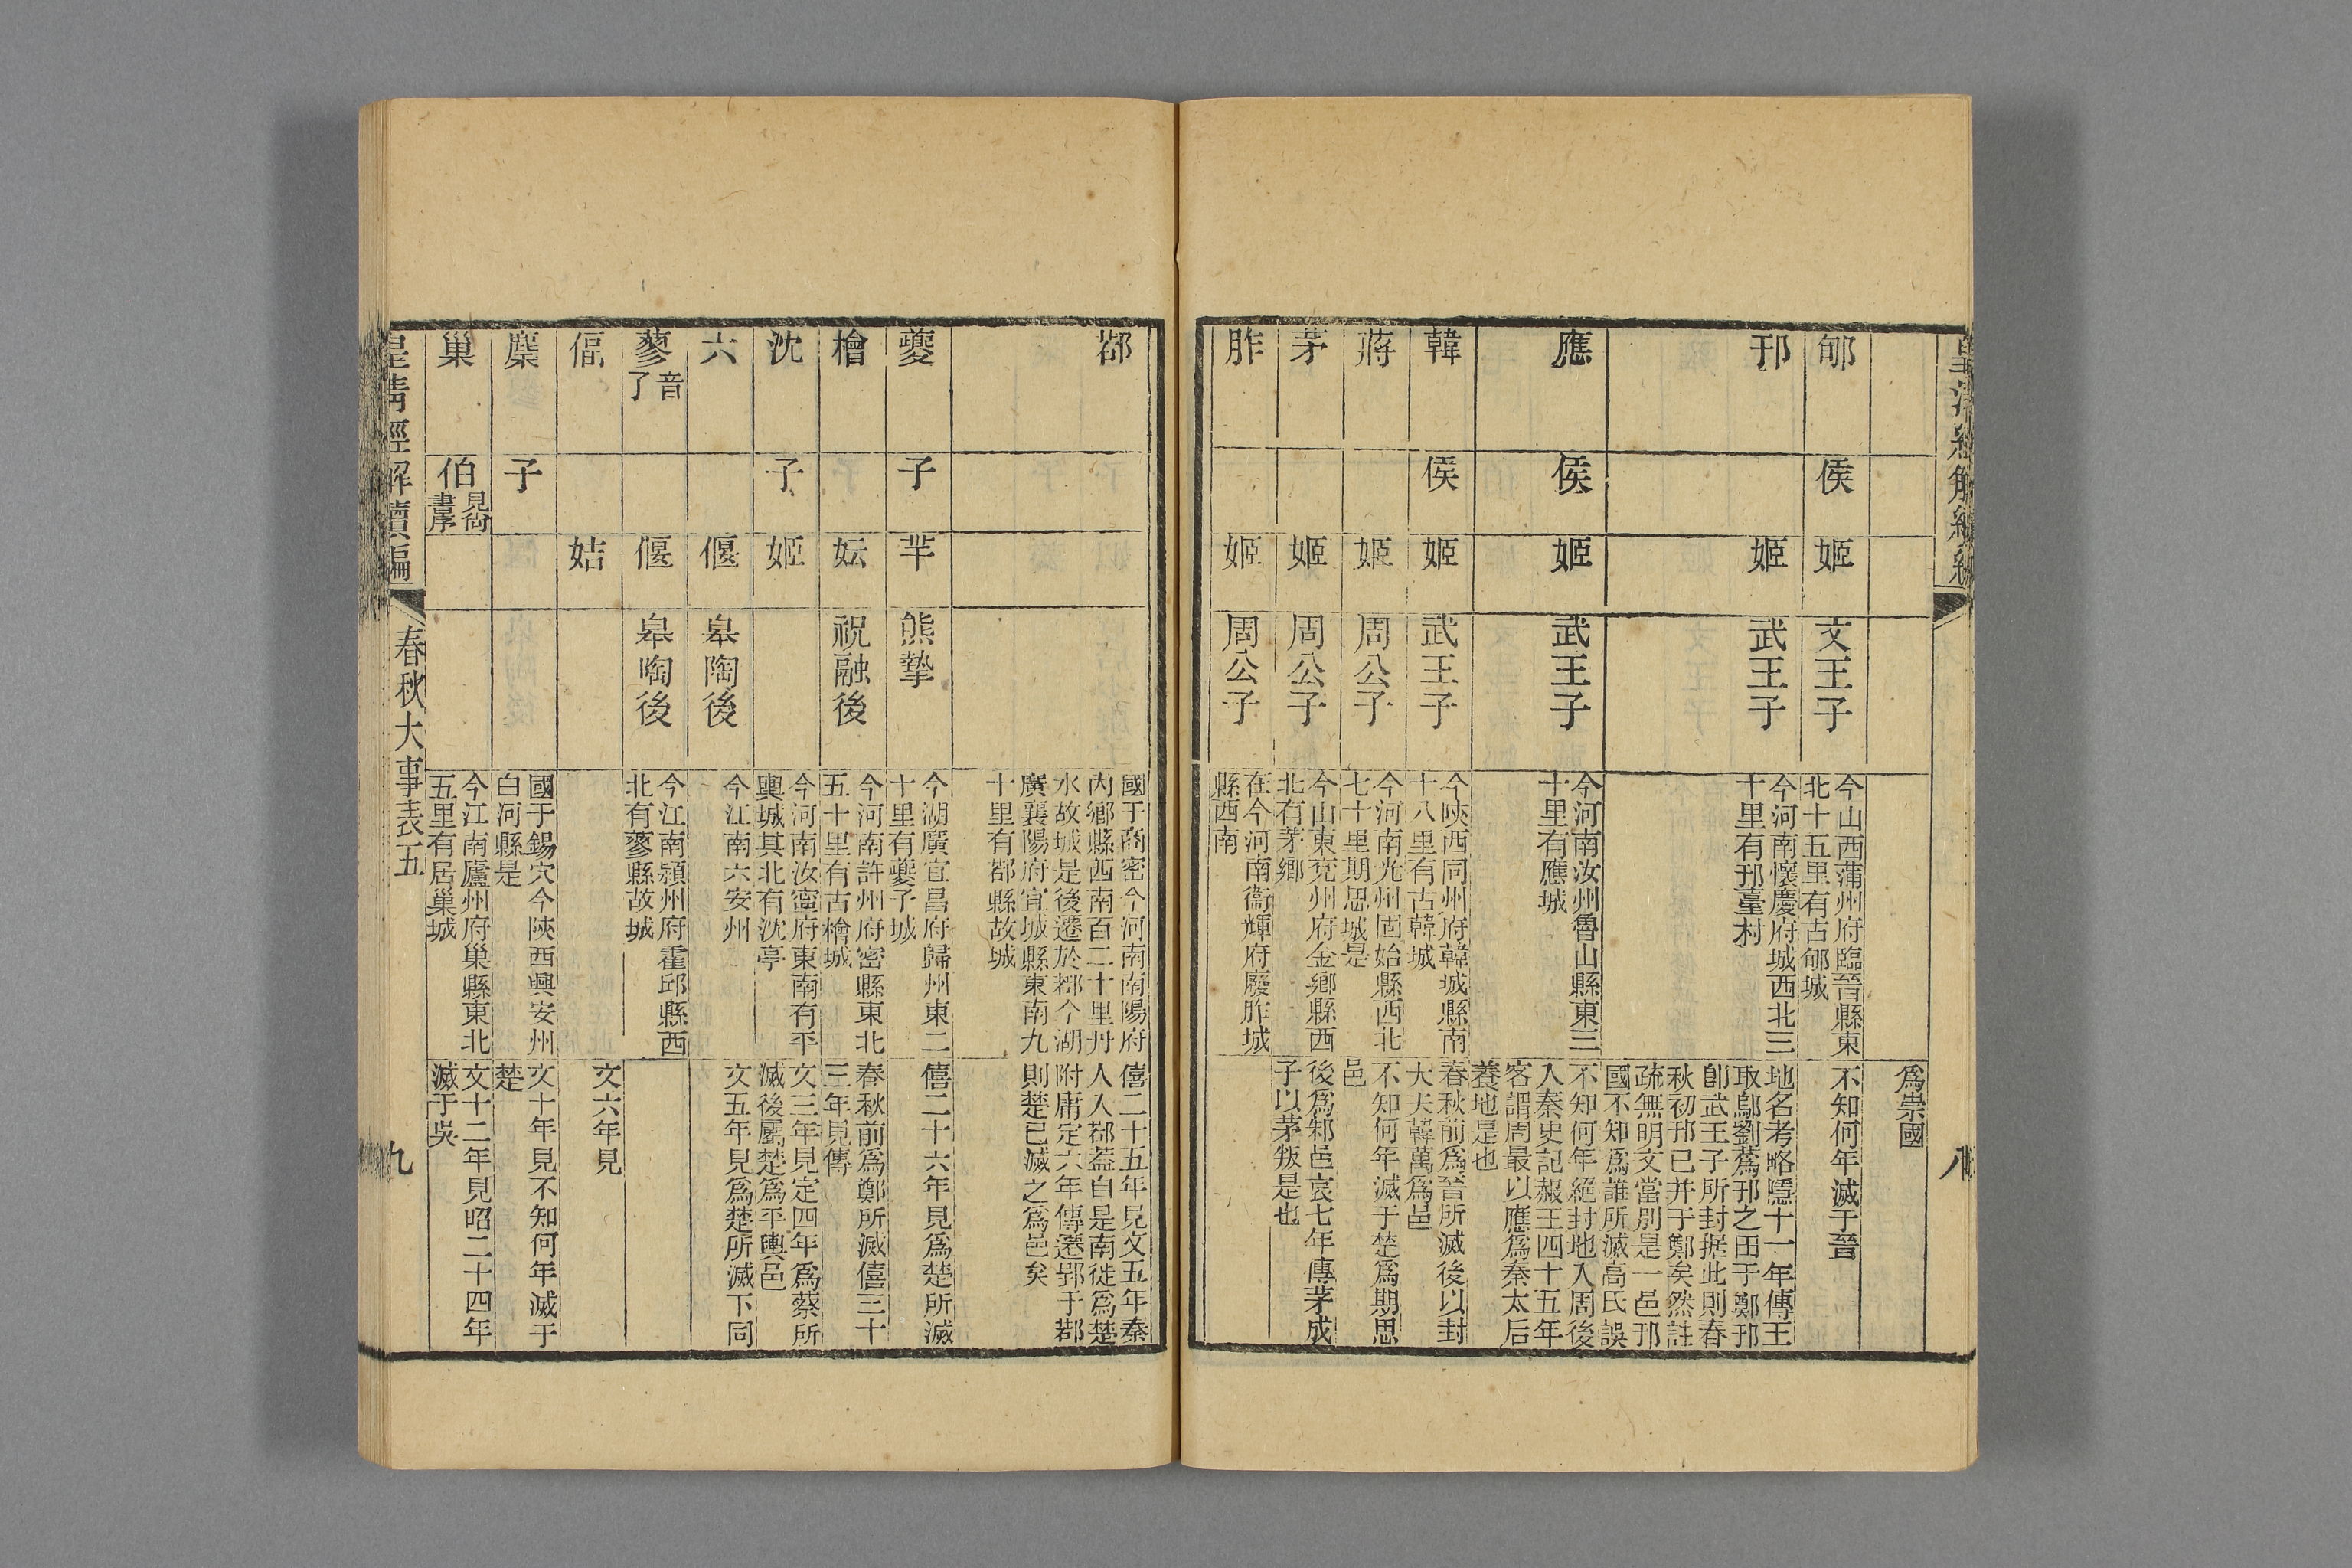 皇清經解續編
八
爲崇國
郇
侯
姬
文王子
今山西蒲州府臨晉縣東
北十五里有古郇城
不知何年滅于晉
邘
姬
武王子
今河南懷慶府城西北三
十里有邘臺村
地名考略隱十一年傳王
取鄔劉蔿邘之田于鄭邘
卽武王子所封据此則春
秋初邘已并于鄭矣然註
疏無明文當別是一邑邘
國不知爲誰所滅高氏誤
應
侯
姬
武王子
今河南汝州魯山縣東三
十里有應城
不知何年絕封地入周後
入秦史記赧王四十五年
客謂周最以應爲秦太后
養地是也
韓
侯
姬
武王子
今陝西同州府韓城縣南
十八里有古韓城
春秋前爲晉所滅後以封
大夫韓萬爲邑
蔣
姬
周公子
今河南光州固始縣西北
七十里期思城是
不知何年滅于楚爲期思
邑
茅
姬
周公子
今山東兗州府金鄉縣西
北有茅鄉
後爲邾邑哀七年傳茅成
子以茅叛是也
胙
姬
周公子
在今河南衞輝府廢胙城
縣西南
鄀
國于商密今河南南陽府
內鄉縣西南百二十里丹
水故城是後遷於鄀今湖
廣襄陽府宜城縣東南九
十里有鄀縣故城
僖二十五年見文五年秦
人入鄀蓋自是南徙爲楚
附庸定六年傳遷郢于鄀
則楚已滅之爲邑矣
夔
子
芈
熊摯
今湖廣宜昌府歸州東二
十里有夔子城
僖二十六年見爲楚所滅
檜
妘
祝融後
今河南許州府密縣東北
五十里有古檜城
春秋前爲鄭所滅僖三十
三年見傳
沈
子
姬
今河南汝寧府東南有平
輿城其北有沈亭
文三年見定四年爲蔡所
滅後屬楚爲平輿邑
六
偃
皋陶後
今江南六安州
文五年見爲楚所滅下同
蓼音了
偃
皋陶後
今江南潁州府霍邱縣西
北有蓼縣故城
偪
姞
文六年見
麇
子
國于錫穴今陝西興安州
白河縣是
文十年見不知何年滅于
楚
巢
伯見尙書序
今江南廬州府巢縣東北
五里有居巢城
文十二年見昭二十四年
滅于吳
皇清經解續編
春秋大事表五
九